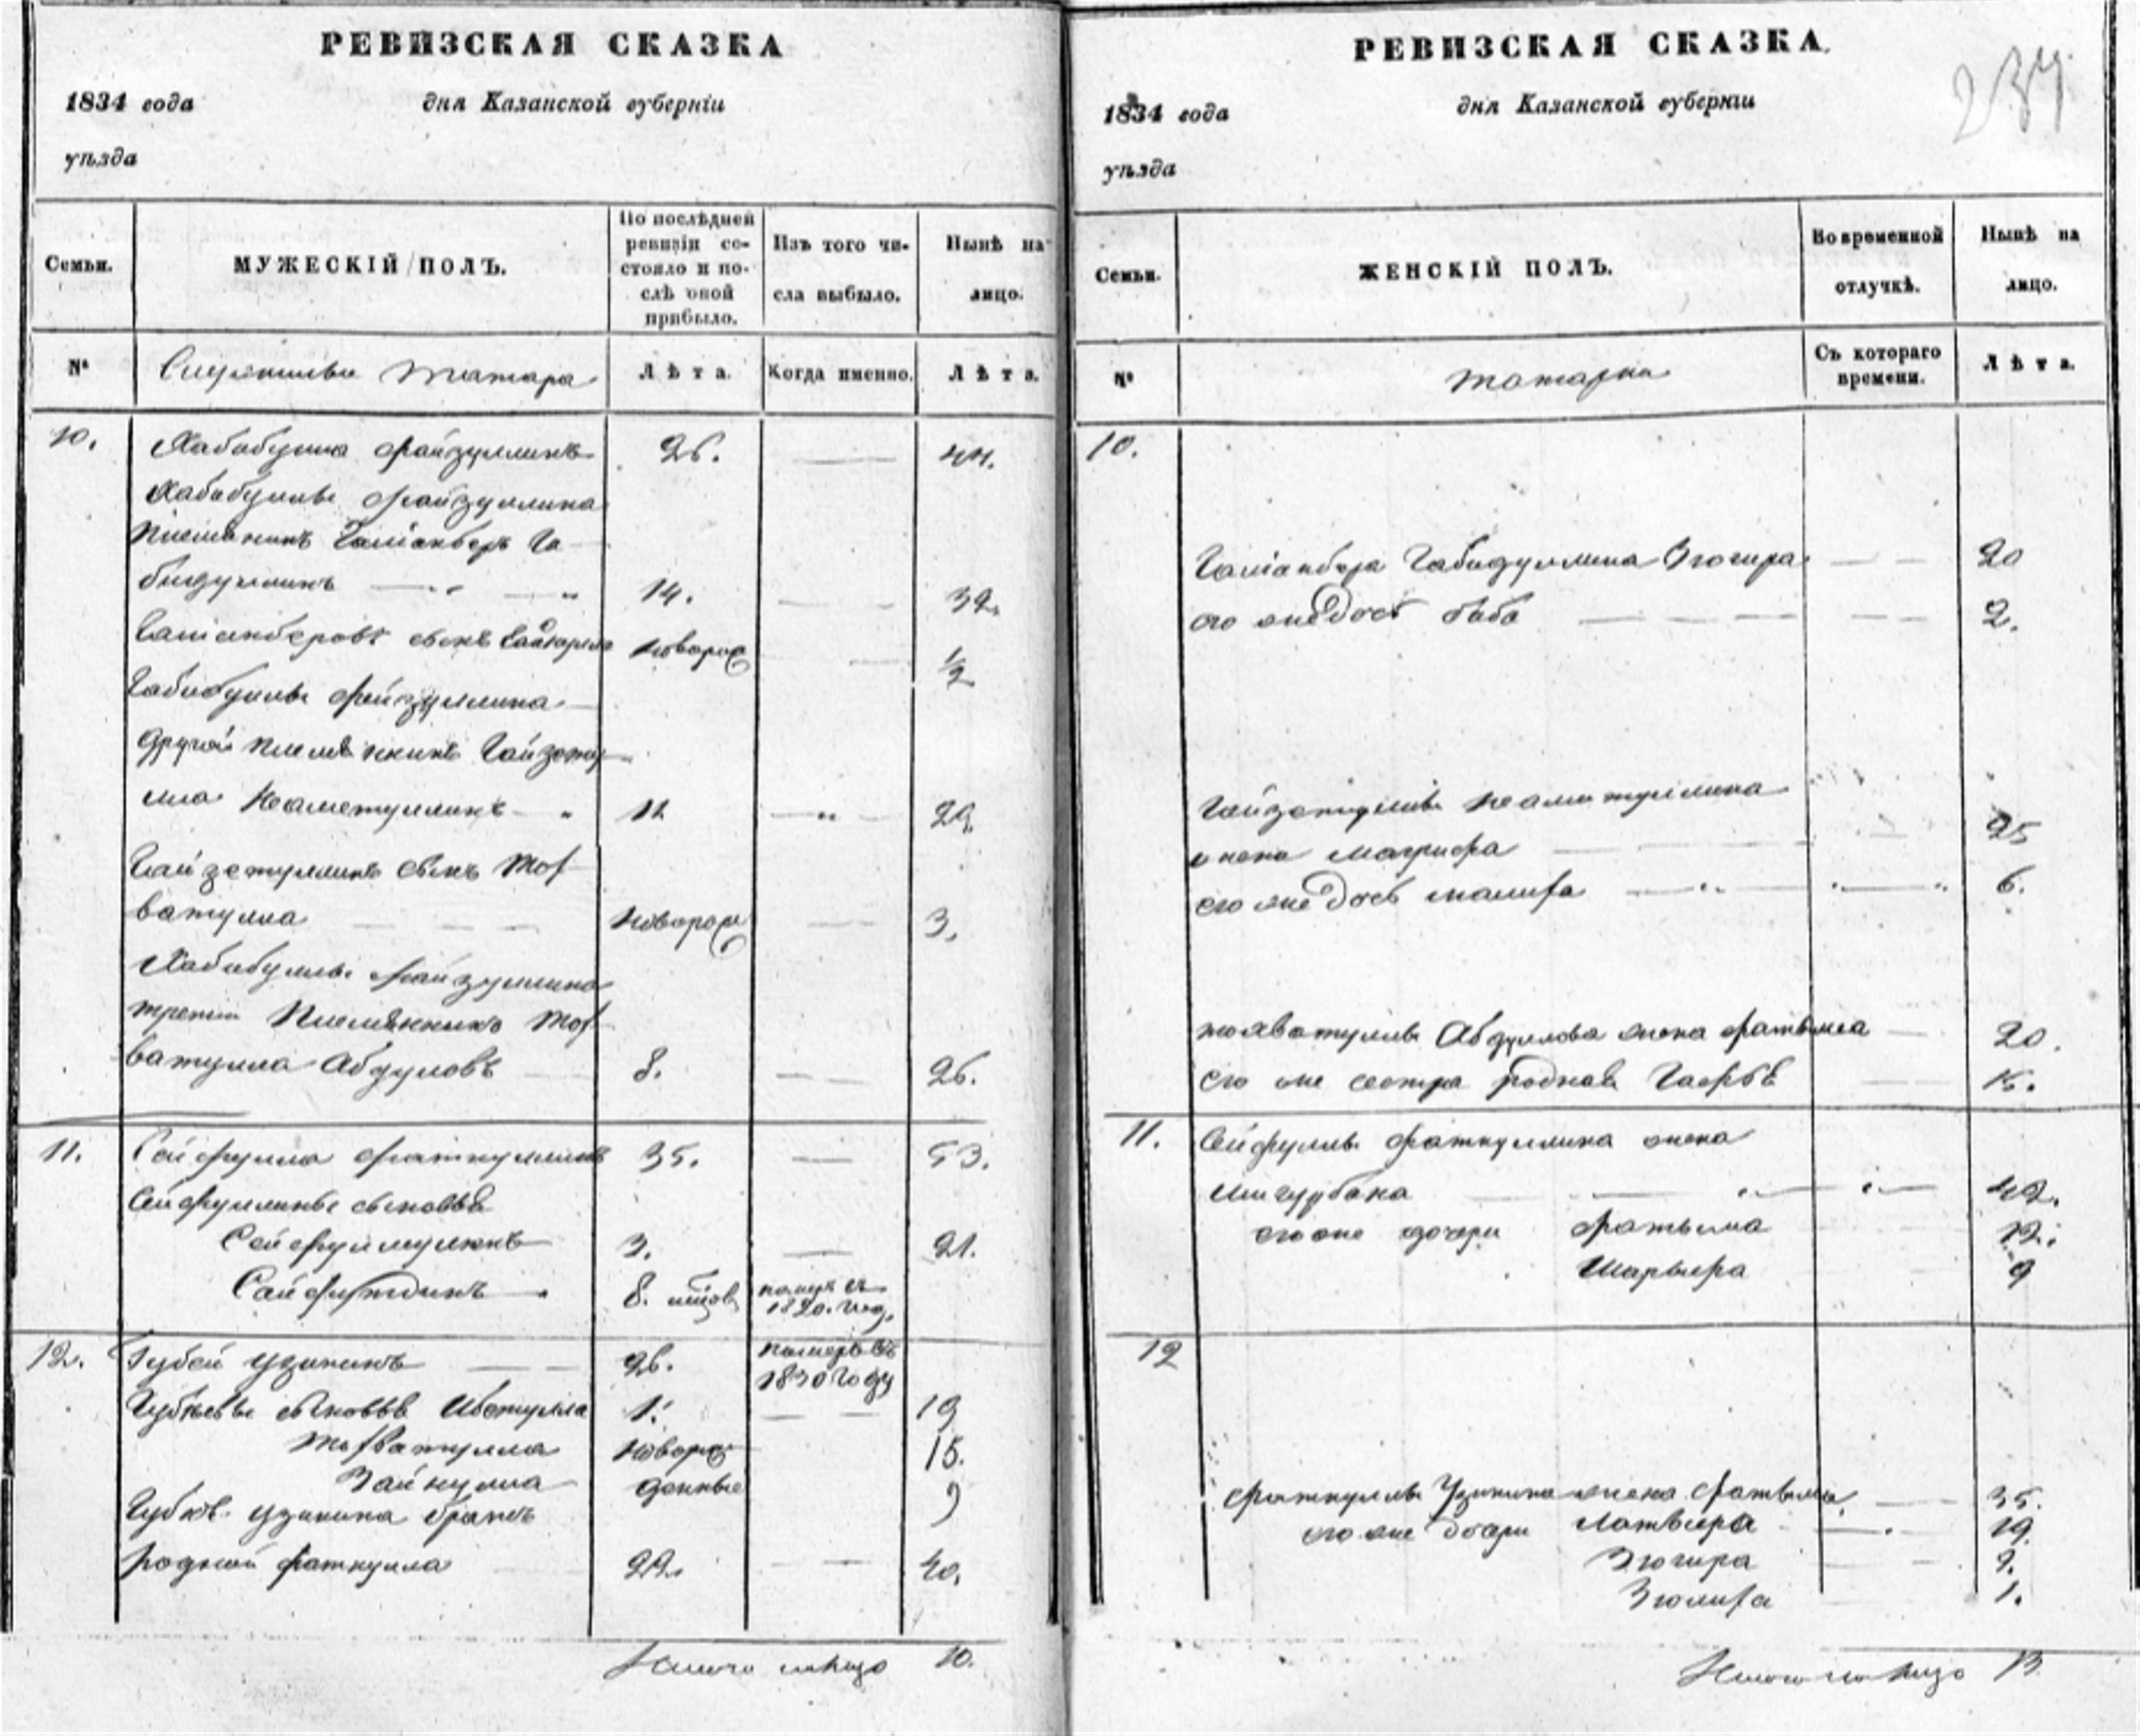 РЕВИЗСКАЯ СКАЗКА
1834 года дня Казанской губерніи
уѣзда
Семьи. МУЖЕСКІЙ ПОЛЪ. По послѣдней ревизіи состояло и послѣ оной прибыло. Изъ того числа выбыло. Нынѣ на лицо.
№ татара Лѣта. Когда именно. Лѣта.
10. Хабибулла Файзуллинъ 26. 44.
Хабибуллы Файзуллина
племянникъ Га
бидуллинъ 14. 32.
сынъ новорож 1/2
Хабибуллы Файзуллина
другой племянникъ Гайзету
лла Неаметуллинъ 11 29.
Гайзетуллинъ сынъ Мох
ватулла новорож 3.
Хабибуллы Файзуллина
третий племянникъ Мох
ватулла Абдуловъ 8. 26.
11. Сейфулла Фаткуллинъ 35. 53.
Сейфуллины сыновья
3. 21.
Сайфутдинъ 8. 1820. год.
12. Губей Узикинъ 26. померъ въ
1830 году
Губеевы сыновья Ибетулла 1. 19
Мохватулла новорож 15.
Зайнулла денные 9
Губея Узикина братъ
родной Фаткулла 22. 40.
Итого на лицо 10.
РЕВИЗСКАЯ СКАЗКА.
237
1834 года дня Казанской губерніи
уѣзда
Семьи. ЖЕНСКІЙ ПОЛЪ. Во временной отлучкѣ. Нынѣ на лицо.
№ татарки Съ котораго времени. Лѣта.
10.
Габидуллина Зюгира 20
его же дочь Биби 2.
Гайзетуллы Неаметуллина
жена Магрифа 25
его же дочь Малифа 6.
Мохватуллы Абдулова жена Фатыма 20.
его же сестра родная 15.
11. Сейфуллы Фаткуллина жена
42.
его же дочери Фатыма 12.
9
12
Фаткуллы Узикина жена Фатыма 35.
его же дочери 19.
Зюгира 2.
Зюлифа 1.
Итого на лицо 13